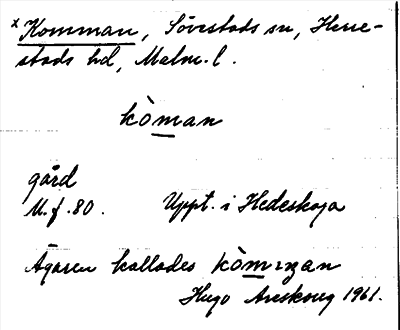 x Komman, Sövestads sn, Herre-
stads hd, Malm. l.
kòman
gård
U. f. 80. Uppt. i Hedeskoga
Ägaren kallades kòmman
Hugo Areskoug 1961.